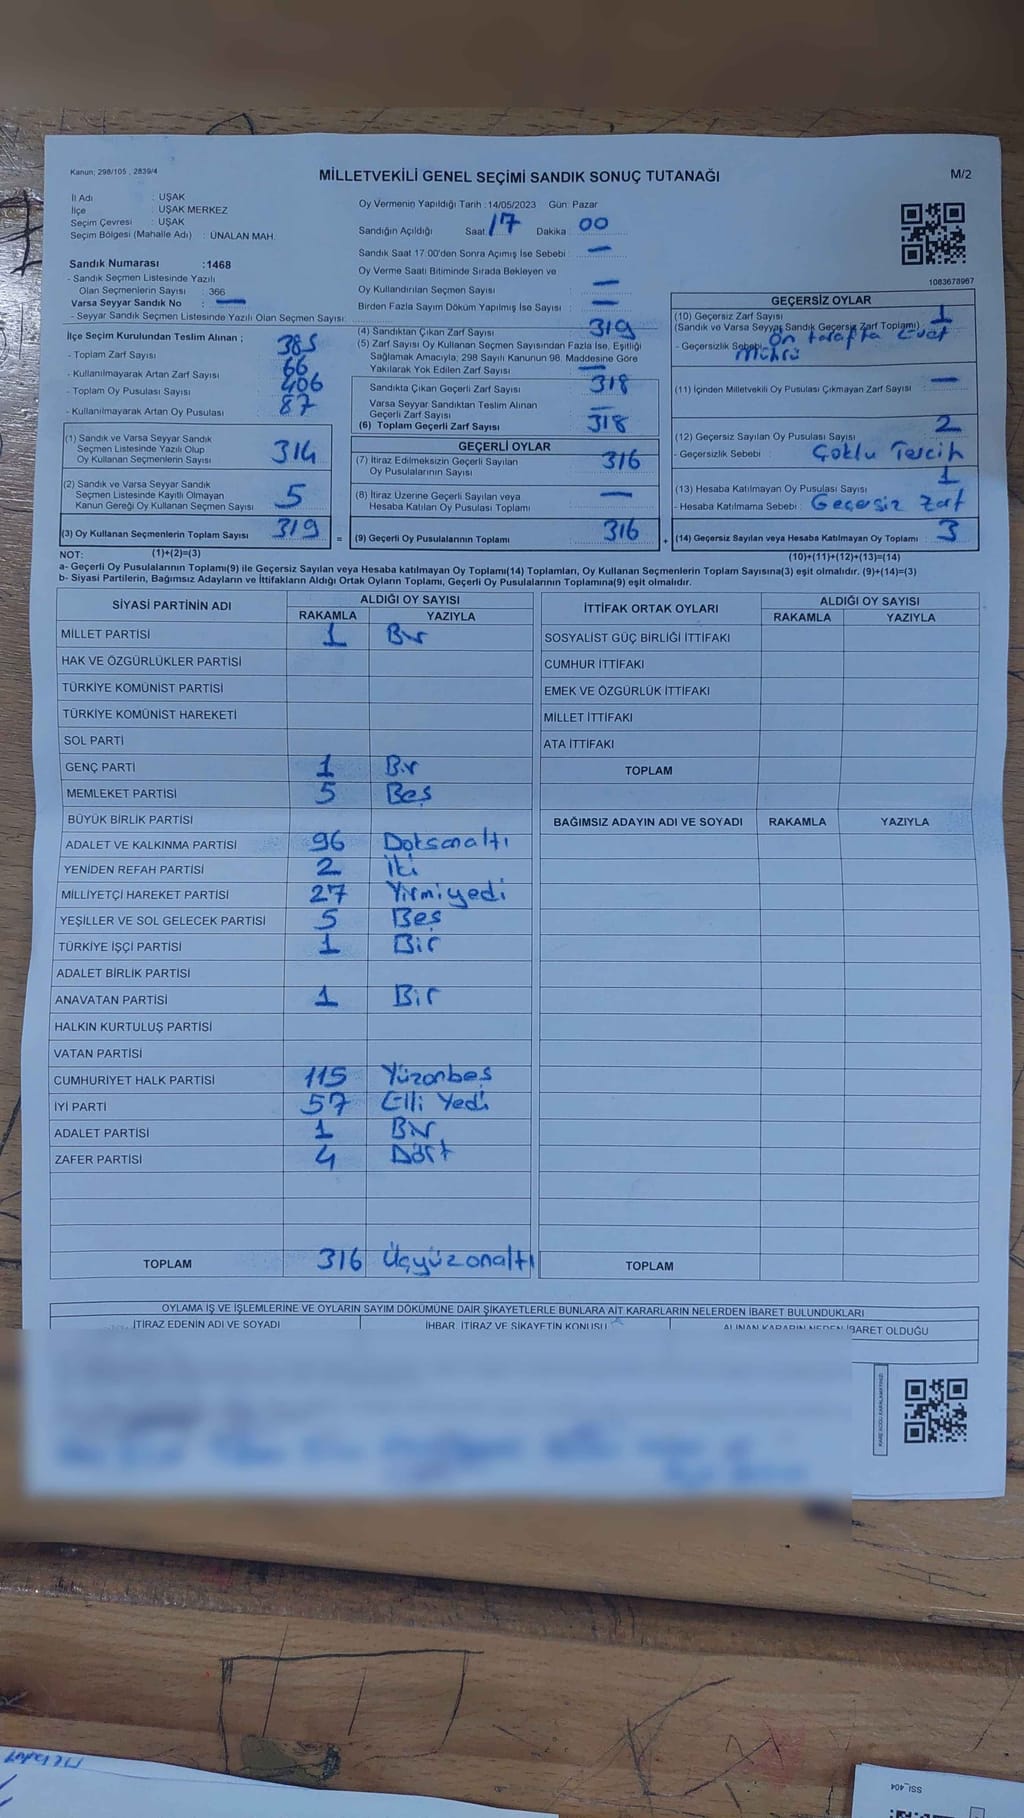 Kanun; 298/105 , 2839/4
MİLLETVEKİLİ GENEL SEÇİMİ SANDIK SONUÇ TUTANAĞI
M/2
İl Adı : UŞAK
İlçe : UŞAK MERKEZ
Seçim Çevresi : UŞAK
Seçim Bölgesi (Mahalle Adı) : ÜNALAN MAH.
Sandık Numarası :1468
- Sandık Seçmen Listesinde Yazılı
Olan Seçmenlerin Sayısı : 366
Varsa Seyyar Sandık No : —
- Seyyar Sandık Seçmen Listesinde Yazılı Olan Seçmen Sayısı:
Oy Vermenin Yapıldığı Tarih :14/05/2023 Gün: Pazar
Sandığın Açıldığı Saat: 17 Dakika : 00
Sandık Saat 17:00'den Sonra Açımış İse Sebebi : —
Oy Verme Saati Bitiminde Sırada Bekleyen ve
Oy Kullandırılan Seçmen Sayısı : —
Birden Fazla Sayım Döküm Yapılmış İse Sayısı : —
1083678967
İlçe Seçim Kurulundan Teslim Alınan ;
- Toplam Zarf Sayısı : 385
- Kullanılmayarak Artan Zarf Sayısı : 66
- Toplam Oy Pusulası Sayısı : 406
- Kullanılmayarak Artan Oy Pusulası : 87
(1) Sandık ve Varsa Seyyar Sandık
Seçmen Listesinde Yazılı Olup
Oy Kullanan Seçmenlerin Sayısı : 314
(2) Sandık ve Varsa Seyyar Sandık
Seçmen Listesinde Kayıtlı Olmayan
Kanun Gereği Oy Kullanan Seçmen Sayısı : 5
(3) Oy Kullanan Seçmenlerin Toplam Sayısı : 319
(4) Sandıktan Çıkan Zarf Sayısı : 319
(5) Zarf Sayısı Oy Kullanan Seçmen Sayısından Fazla İse, Eşitliği
Sağlamak Amacıyla; 298 Sayılı Kanunun 98. Maddesine Göre
Yakılarak Yok Edilen Zarf Sayısı : —
Sandıkta Çıkan Geçerli Zarf Sayısı : 318
Varsa Seyyar Sandıktan Teslim Alınan
Geçerli Zarf Sayısı : —
(6) Toplam Geçerli Zarf Sayısı : 318
GEÇERLİ OYLAR
(7) İtiraz Edilmeksizin Geçerli Sayılan
Oy Pusulalarının Sayısı : 316
(8) İtiraz Üzerine Geçerli Sayılan veya
Hesaba Katılan Oy Pusulası Toplamı : —
= (9) Geçerli Oy Pusulalarının Toplamı : 316
GEÇERSİZ OYLAR
(10) Geçersiz Zarf Sayısı : 1
(Sandık ve Varsa Seyyar Sandık Geçersiz Zarf Toplamı)
- Geçersizlik Sebebi : Ön tarafta Evet
Mührü
(11) İçinden Milletvekili Oy Pusulası Çıkmayan Zarf Sayısı : —
(12) Geçersiz Sayılan Oy Pusulası Sayısı : 2
- Geçersizlik Sebebi : Çoklu Tercih
(13) Hesaba Katılmayan Oy Pusulası Sayısı : 1
- Hesaba Katılmama Sebebi : Geçersiz Zarf
+ (14) Geçersiz Sayılan veya Hesaba Katılmayan Oy Toplamı : 3
NOT: (1)+(2)=(3)
(10)+(11)+(12)+(13)=(14)
a- Geçerli Oy Pusulalarının Toplamı(9) ile Geçersiz Sayılan veya Hesaba katılmayan Oy Toplamı(14) Toplamları, Oy Kullanan Seçmenlerin Toplam Sayısına(3) eşit olmalıdır. (9)+(14)=(3)
b- Siyasi Partilerin, Bağımsız Adayların ve İttifakların Aldığı Ortak Oyların Toplamı, Geçerli Oy Pusulalarının Toplamına(9) eşit olmalıdır.
SİYASİ PARTİNİN ADI ALDIĞI OY SAYISI
RAKAMLA YAZIYLA
MİLLET PARTİSİ 1 Bir
HAK VE ÖZGÜRLÜKLER PARTİSİ
TÜRKİYE KOMÜNİST PARTİSİ
TÜRKİYE KOMÜNİST HAREKETİ
SOL PARTİ
GENÇ PARTİ 1 Bir
MEMLEKET PARTİSİ 5 Beş
BÜYÜK BİRLİK PARTİSİ
ADALET VE KALKINMA PARTİSİ 96 Doksanaltı
YENİDEN REFAH PARTİSİ 2 İki
MİLLİYETÇİ HAREKET PARTİSİ 27 Yirmiyedi
YEŞİLLER VE SOL GELECEK PARTİSİ 5 Beş
TÜRKİYE İŞÇİ PARTİSİ 1 Bir
ADALET BİRLİK PARTİSİ
ANAVATAN PARTİSİ 1 Bir
HALKIN KURTULUŞ PARTİSİ
VATAN PARTİSİ
CUMHURİYET HALK PARTİSİ 115 Yüzonbeş
İYİ PARTİ 57 Elli Yedi
ADALET PARTİSİ 1 Bir
ZAFER PARTİSİ 4 Dört
TOPLAM 316 Üçyüzonaltı
İTTİFAK ORTAK OYLARI ALDIĞI OY SAYISI
RAKAMLA YAZIYLA
SOSYALİST GÜÇ BİRLİĞİ İTTİFAKI
CUMHUR İTTİFAKI
EMEK VE ÖZGÜRLÜK İTTİFAKI
MİLLET İTTİFAKI
ATA İTTİFAKI
TOPLAM
BAĞIMSIZ ADAYIN ADI VE SOYADI RAKAMLA YAZIYLA
TOPLAM
OYLAMA İŞ VE İŞLEMLERİNE VE OYLARIN SAYIM DÖKÜMÜNE DAİR ŞİKAYETLERLE BUNLARA AİT KARARLARIN NELERDEN İBARET BULUNDUKLARI
İTİRAZ EDENİN ADI VE SOYADI İHBAR, İTİRAZ VE ŞİKAYETİN KONUSU ALINAN KARARIN NEDEN İBARET OLDUĞU
SSİ_404